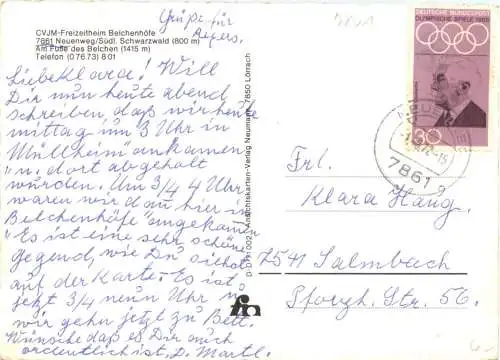 CVJM-Freizeitheim Belchenhöfe
7861 Neuenweg/Südl. Schwarzwald (800 m)
Am Fuße des Belchen (1415 m)
Telefon (0 76 73) 8 01
Grüße für
Liebe Klara! Will
Dir nun heute abend
schreiben, daß wir heute
mittag um 3 Uhr in
Müllheim ankamen
u. dort abgeholt
wurden. Um 3/4 4 Uhr
waren wir dann hier in
"Belchenhöfe" angekommen
Es ist eine sehr schöne
Gegend, wie Du siehst
auf der Karte. Es ist
jetzt 3/4 neun Uhr u.
wir gehn jetzt zu Bett.
Wünsche daß es Dir auch
ordentlich ist, D. Martl.
Ansichtskarten-Verlag Neumann, 7850 Lörrach
fn
DEUTSCHE BUNDESPOST
OLYMPISCHE SPIELE 1968
30
7861
Frl.
Klara Haug
7541 Salmbach
Pforzh. Str. 56.